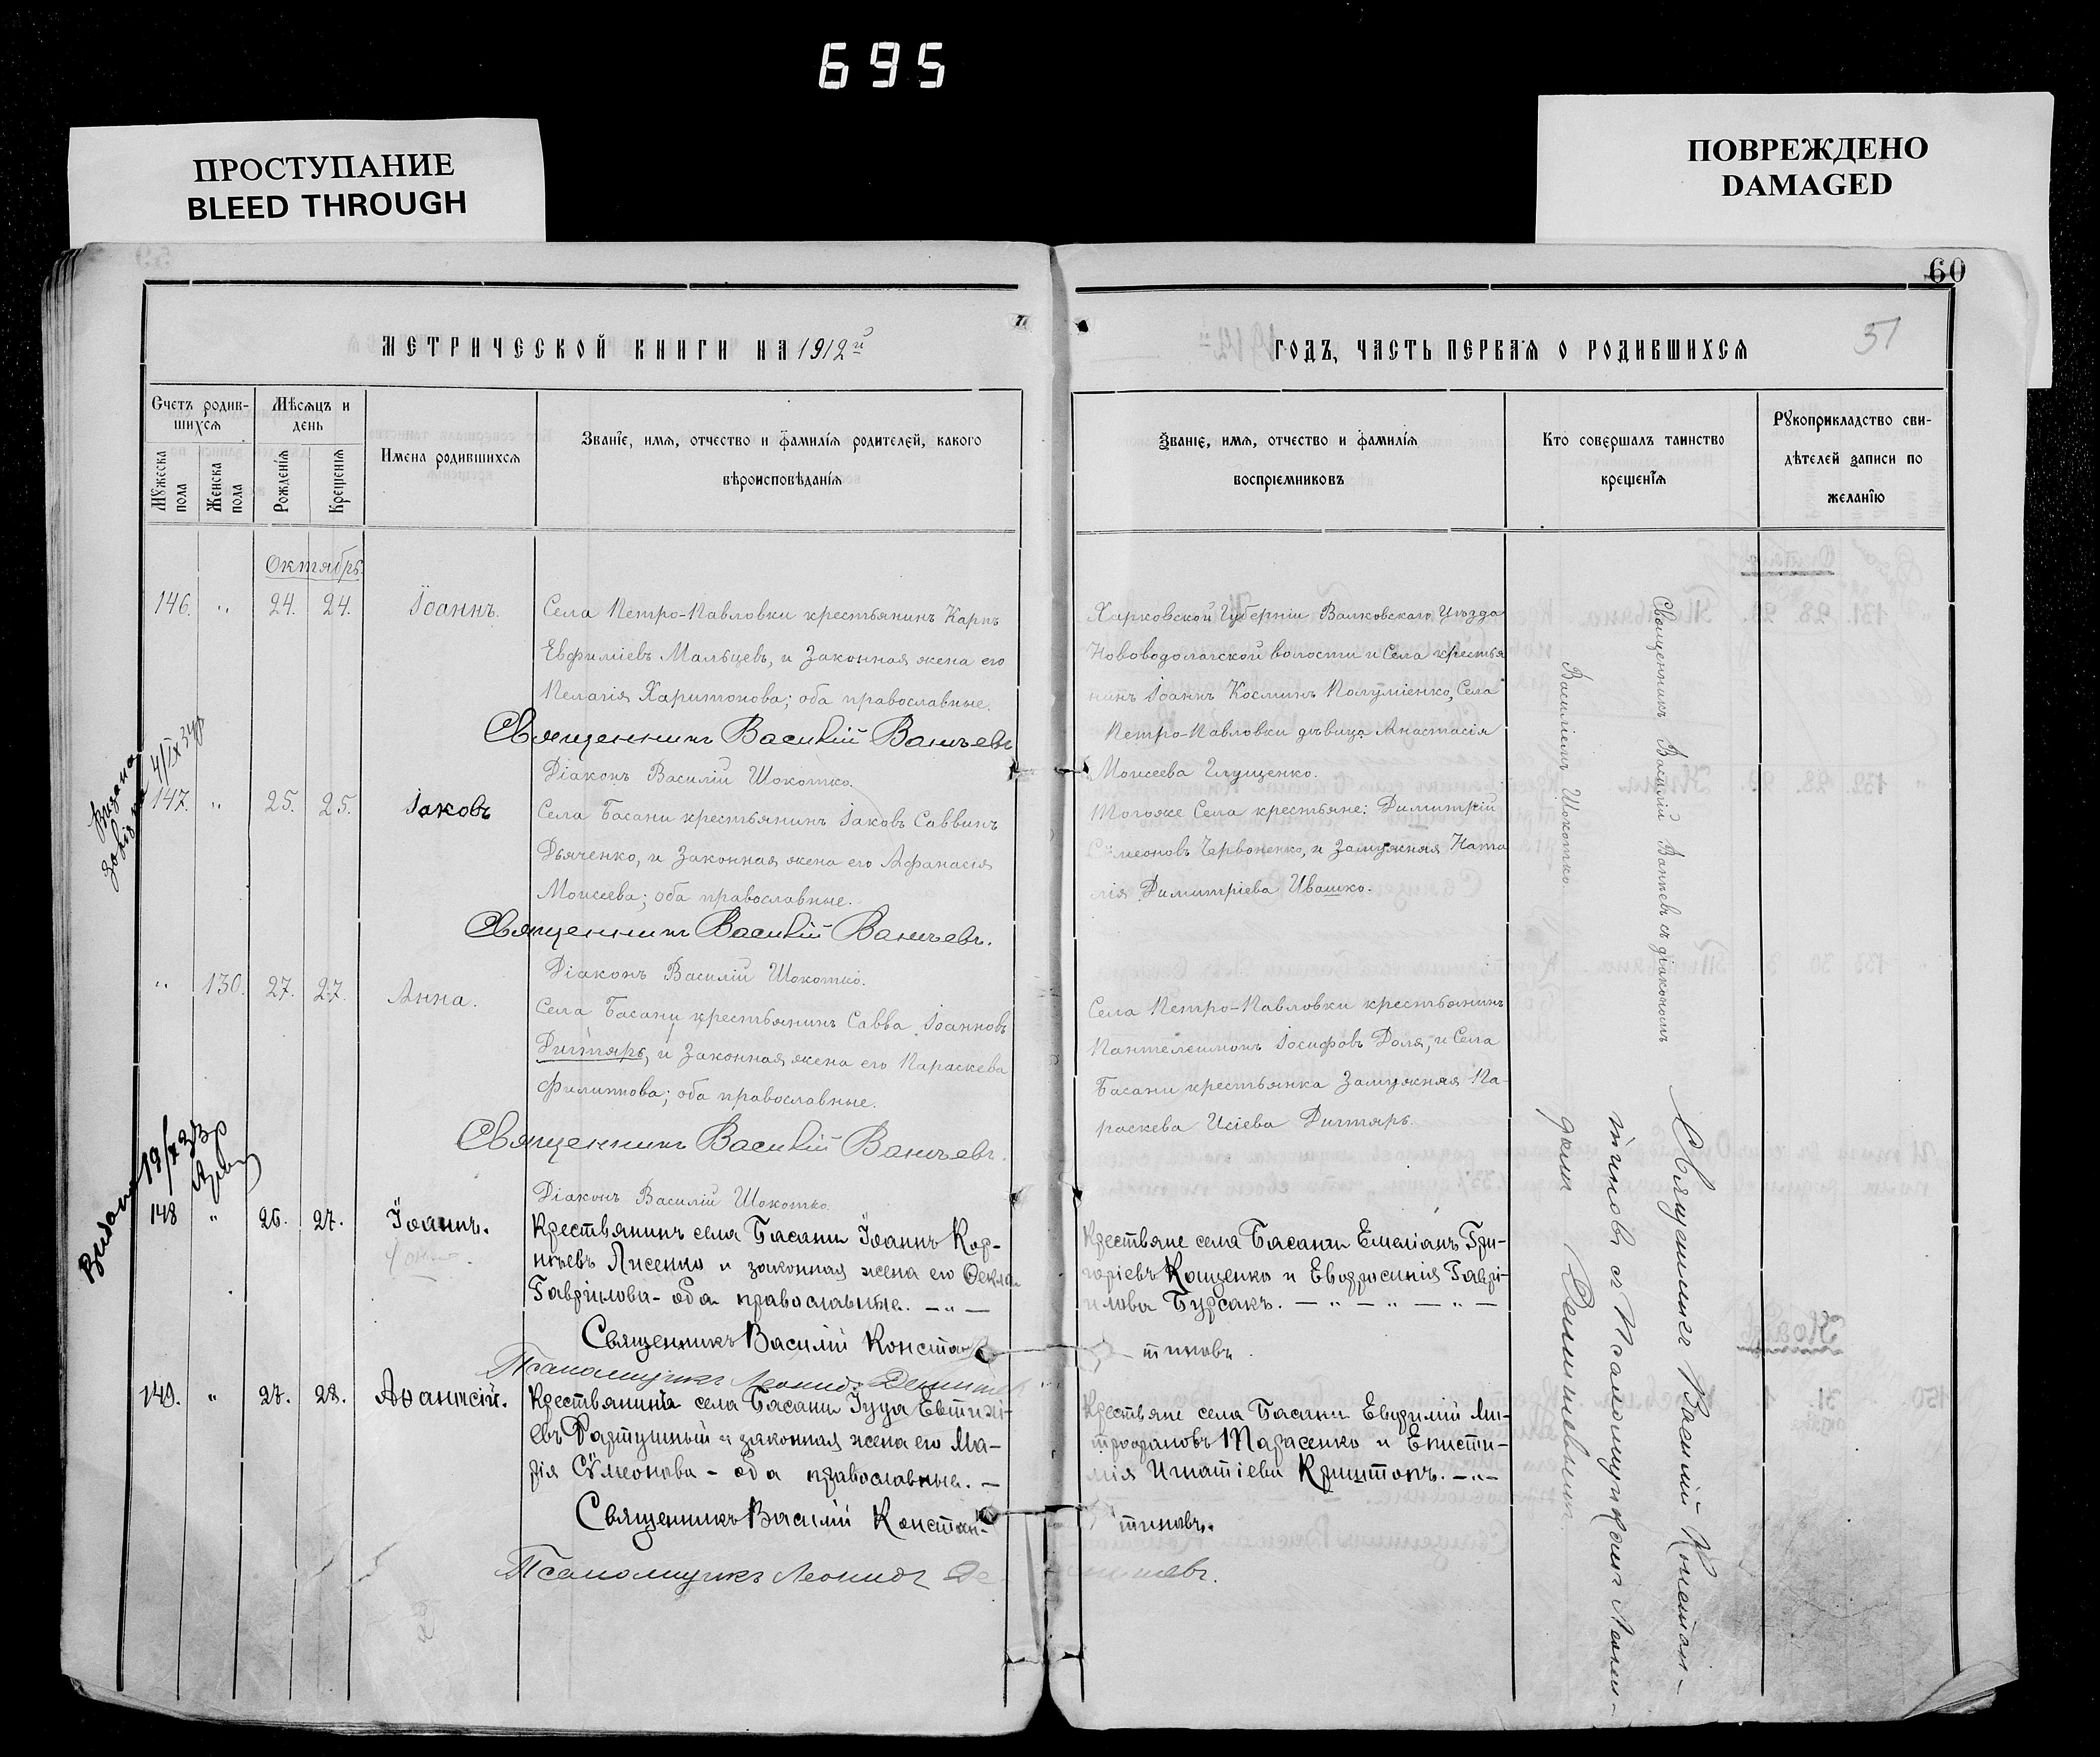 695
ПРОСТУПАНИЕ
BLEED THROUGH
ПОВРЕЖДЕНО
DAMAGED
60
51
МЕТРИЧЕСКОЙ КНИГИ НА 1912й
ГОДЪ, ЧАСТЬ ПЕРВАЯ О РОДИВШИХСЯ
Счетъ родив-
шихся
Мѣсяцъ и
день
Мужеска
пола
Женска
пола
Рожденія
Крещенія
Имена родившихся
Званіе, имя, отчество и фамилія родителей, какого
вѣроисповѣданія
Званіе, имя, отчество и фамилія
воспріемниковъ
Кто совершалъ таинство
крещенія
Рукоприкладство сви-
дѣтелей записи по
желанію
Октябрь.
146. " 24. 24. Іоаннъ.
Села Петро-Павловки крестьянинъ Карпъ
Евфиміевъ Мальцевъ, и законная жена его
Пелагія Харитонова; оба православные.
Священникъ Василій Ванчъевъ
Діаконъ Василій Шокотко.
Харковской Губерніи Валковскаго Уѣзда
Нововодолагской волости и Села крестья
нинъ Іоаннъ Косминъ Села
Петро-Павловки дѣвица Анастасія
Моисеева Глущенко.
147. " 25. 25. Іаковъ
Села Басани крестьянинъ Іаковъ Саввинъ
Дьяченко, и законная жена его Афанасія
Моисеева; оба православные.
Священникъ Василій Ванчъевъ.
Діаконъ Василій Шокотко.
Тогоже Села крестьяне: Димитрій
Сѵмеоновъ Червоненко, и замужняя Ната
лія Димитріева Ивашко.
" 130. 27. 27. Анна.
Села Басани крестьянинъ Савва Іоанновъ
Дигтярь, и законная жена его Параскева
Филиппова; оба православные.
Священникъ Василій Ванчъевъ.
Діаконъ Василій Шокотко.
Села Петро-Павловки крестьянинъ
Пантелеимонъ Іосифовъ Доля, и Села
Басани крестьянка замужняя Па-
раскева Исіева Дигтярь.
Священникъ Василій Ванчъевъ съ діакономъ
Василіемъ Шокотько
148 " 26. 27. Іоаннъ.
Крестьянинъ села Басани Іоаннъ Кор-
ніевъ Лисенко и законная жена его Ѳекла
Гаврилова - оба православные. — " —
Священникъ Василій Констан-
тиновъ
Псаломщикъ Леонидъ
Крестьяне села Басани Емеліанъ Гри-
горіевъ Кащенко и Евфросинія Гаврі-
илова Бурсакъ. — " — " — " —
149. " 27. 28. Аѳанасій.
Крестьянинъ села Басани Іуда Евтихі-
евъ и законная жена его Ма-
рія Сѵмеонова - оба православные. —
Священникъ Василій Констан-
тиновъ.
Псаломщикъ Леонидъ
Крестьяне села Басани Евфимій Ми-
трофановъ Тарасенко и Еписти-
мія Игнатіева Криштопъ. — " —
Священникъ Василій Констан-
тиновъ съ Псаломщикомъ Леони-
домъ